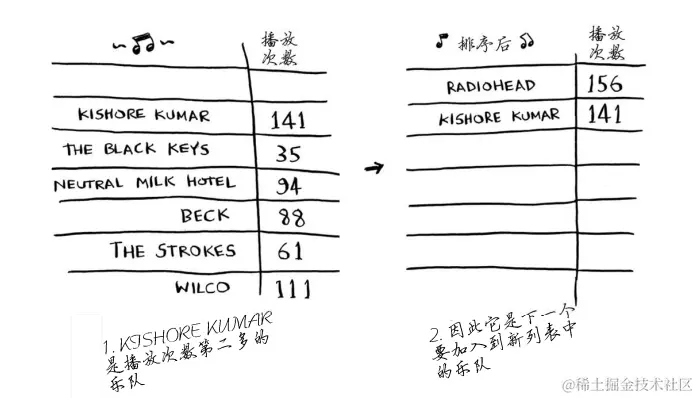 播放
次数
KISHORE KUMAR 141
THE BLACK KEYS 35
NEUTRAL MILK HOTEL 94
BECK 88
THE STROKES 61
WILCO 111
1. KISHORE KUMAR
是播放次数第二多的
乐队
排序后
播放
次数
RADIOHEAD 156
KISHORE KUMAR 141
2. 因此它是下一个
要加入到新列表中
的乐队
@稀土掘金技术社区